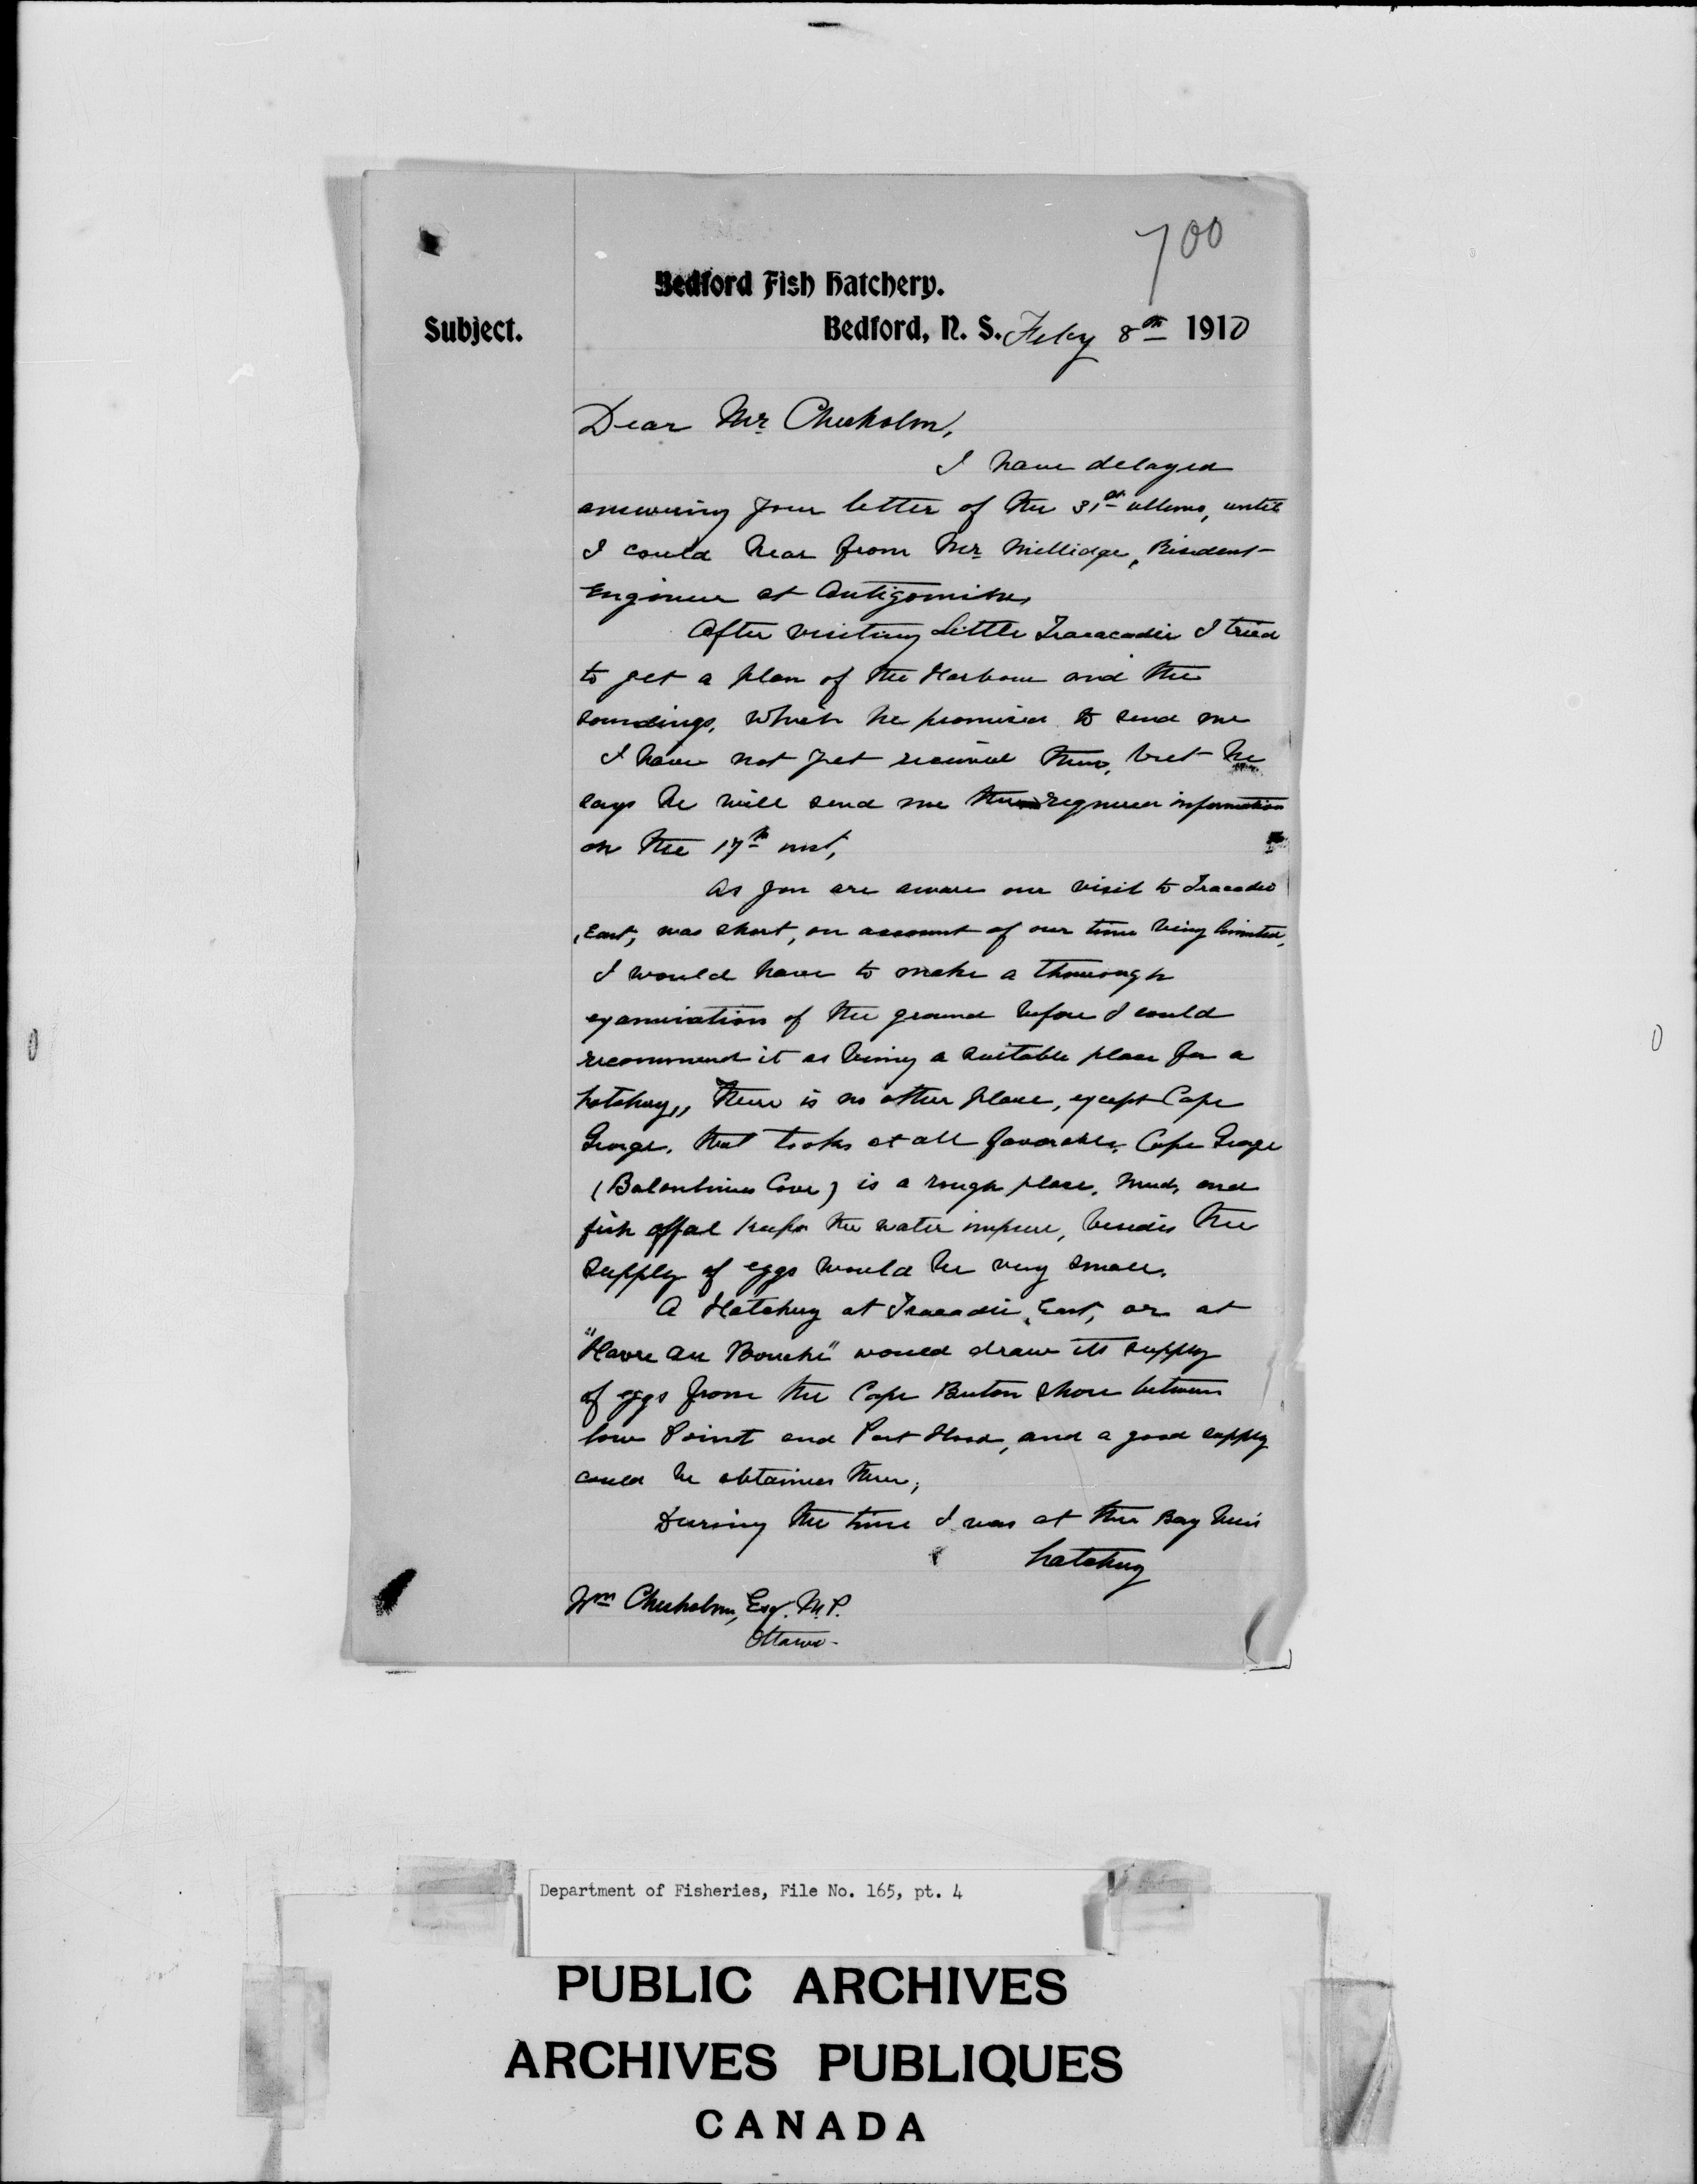 700
Bedford Fish Hatchery.
Subject.
Bedford, N. S. Feby 8th 1910
Dear Mr Chisholm,
I have delayed
answering your letter of the 31st ultimo, until
I could hear from Mr Millidge, Resident
Engineer at Antigonish,
After visiting Little Tracadie I tried
to get a plan of the Harbour and the
soundings, which he promised to send me
I have not yet received them, but he
says he will send me the required information
on the 17th inst,
As you are aware our visit to Tracadie
East, was short, on account of our time being limited,
I would have to make a thorough
examination of the ground before I could
recommend it as being a suitable place for a
hatchery,, There is no other place, except Cape
George, that looks at all favorable, Cape George
(Balentines Cove) is a rough place, Mud, and
fish offal keeps the water impure, besides the
supply of eggs would be very small.
A Hatchery at Tracadie, East, or at
"Havre au Bouche" would draw its supply
of eggs from the Cape Breton shore between
low Point and Port Hood, and a good supply
could be obtained there,
During the time I was at the Bay View
hatchery
Wm Chisholm, Esq. M.P.
Ottawa
Department of Fisheries, File No. 165, pt. 4
PUBLIC ARCHIVES
ARCHIVES PUBLIQUES
CANADA